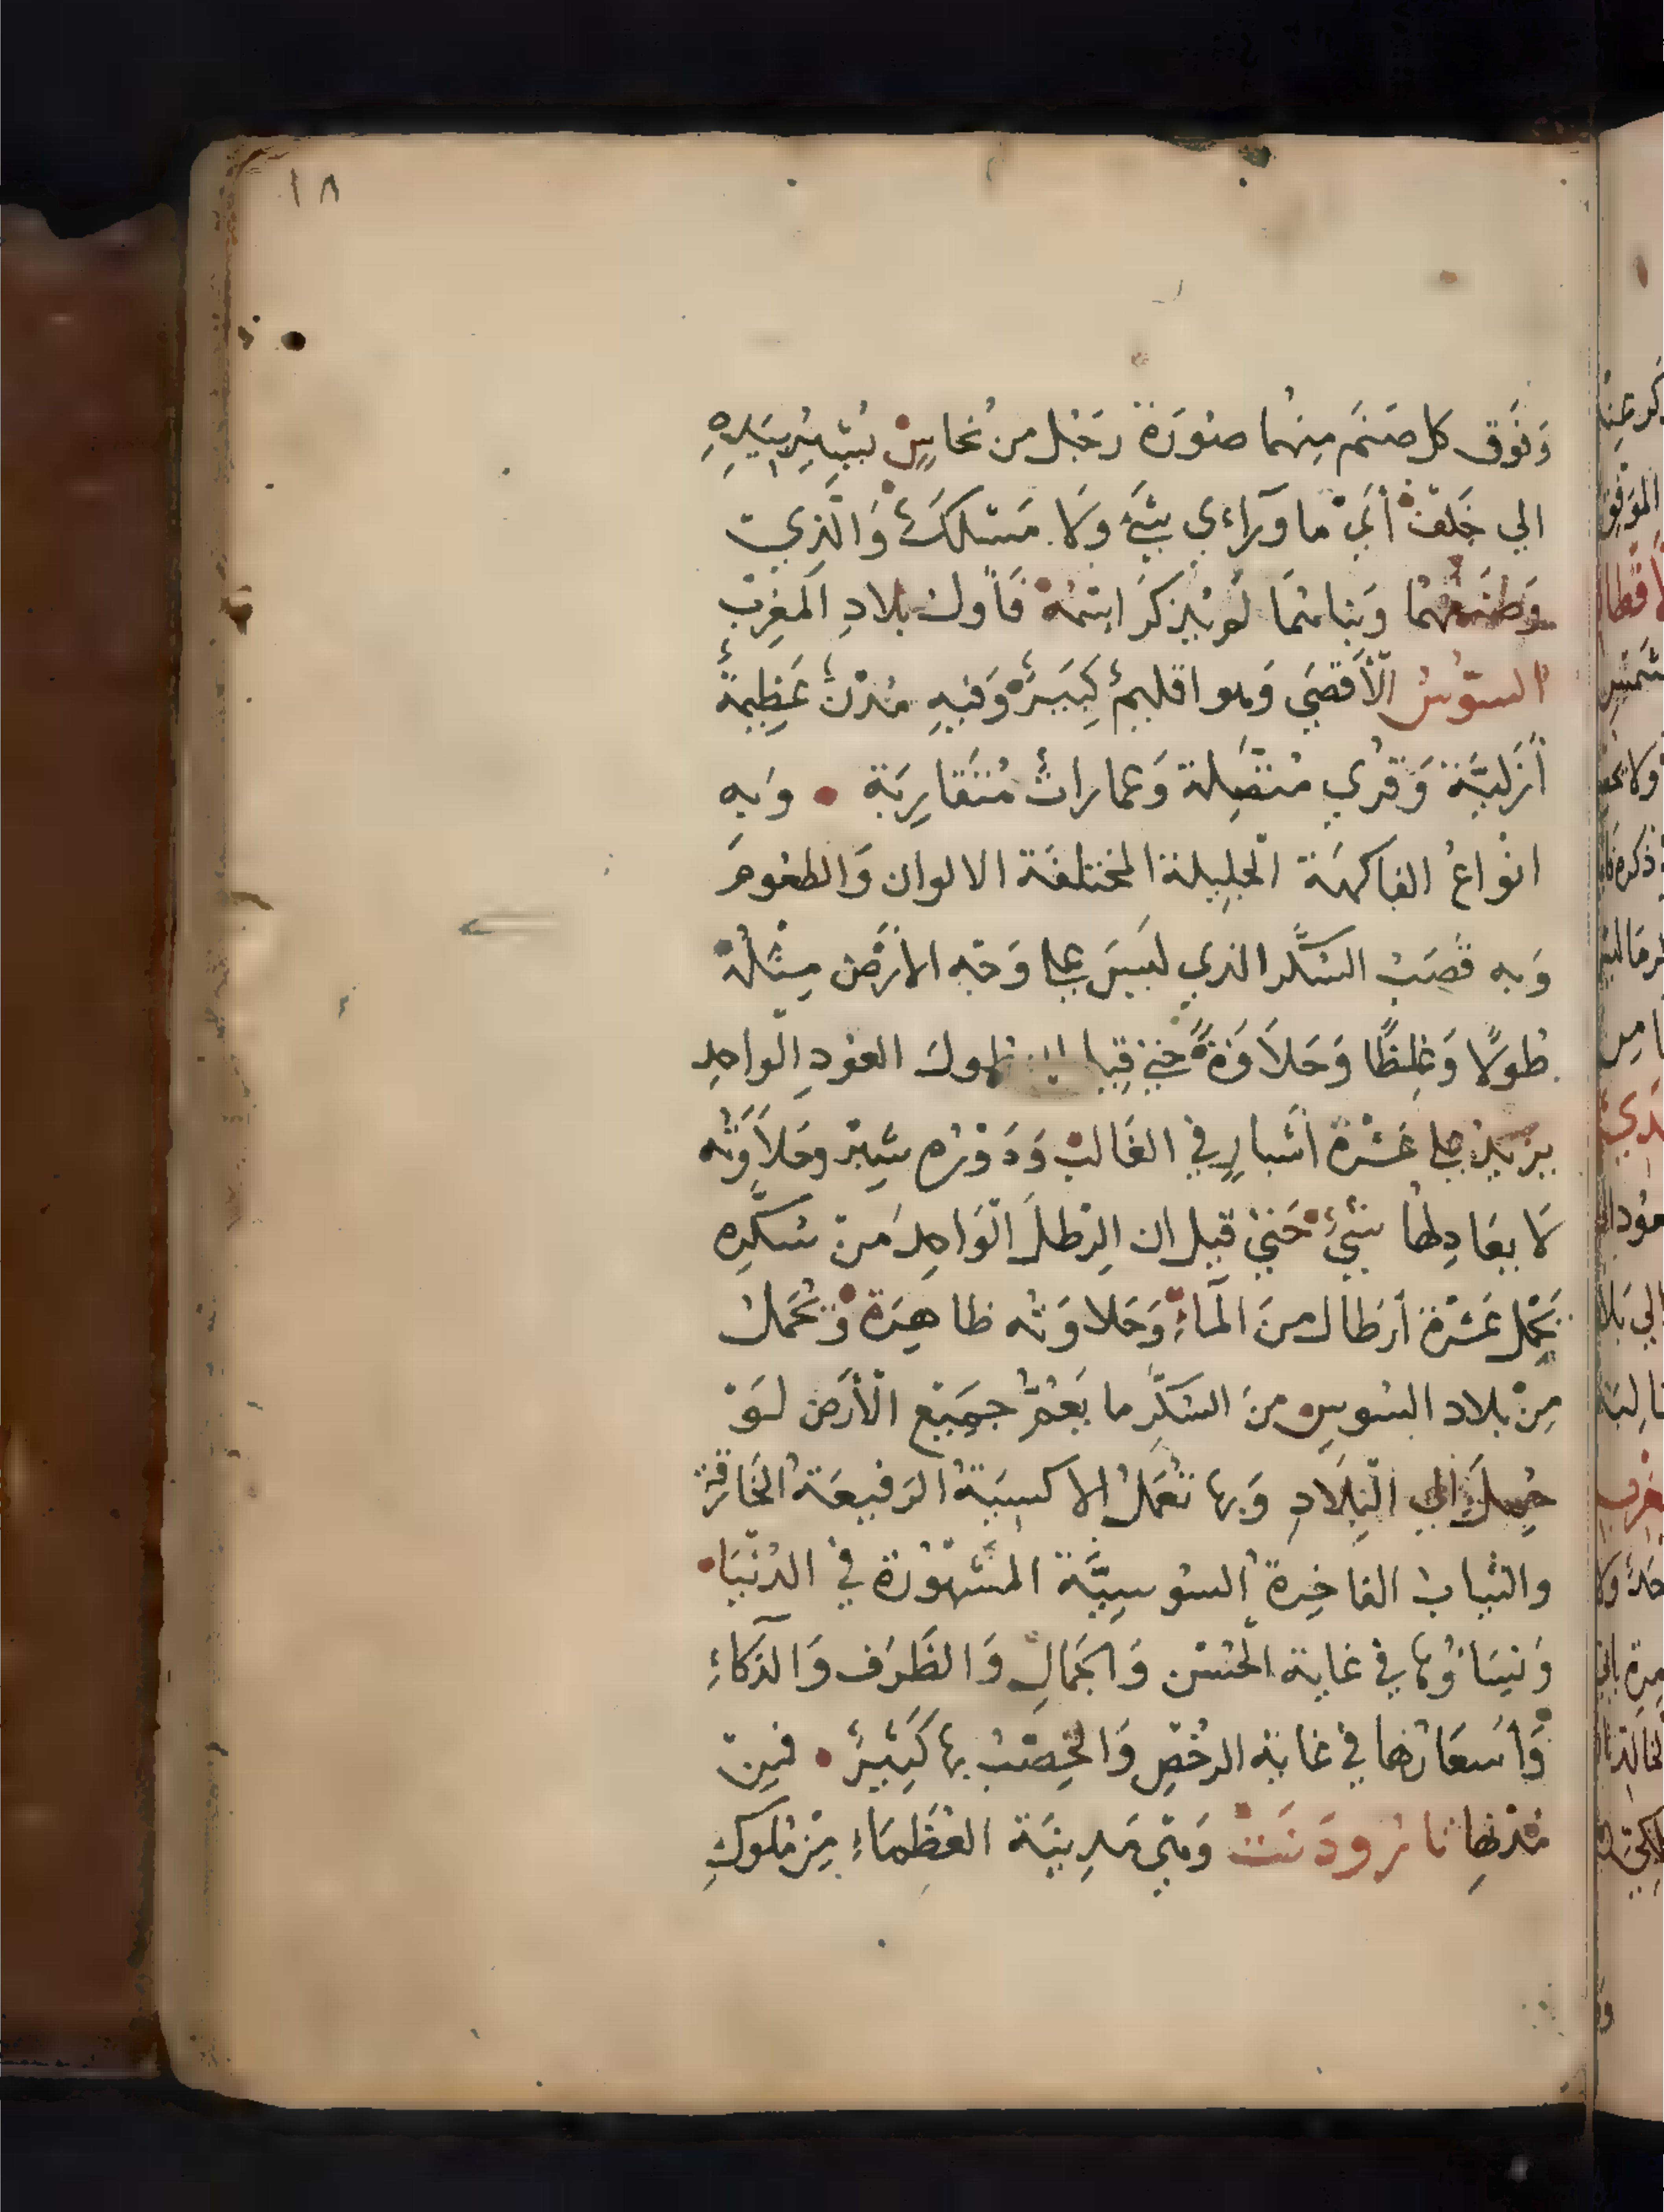 ١٨
وَفَوق كل صَنَم مِنهُما صُورَة رَجُل من نُحاسٍ يُشِيرُ بِيَدِهِ
الي خَلف أَيْ ما وَرَاءي شَيْءٌ وَلَا مَسْلَكٌ وَالَّذِي
وَضَعَهُما وَبَناهُمَا لَم يُذكَرَ اسْمُهُ فَأَول بلادِ المَغرِبْ
السّوُسُ الْأَقصَي وَهو اقليمٌ كَبِيرٌ وَفيهِ مُدُنٌ عَظِيمَةٌ
أَزَلِيَّة وَقُرَي مُتَّصِلة وَعمارات مُتَقارِبَة وَبه
انْواعُ الفاكهَة الجَلِيلة المختلفَة الالوان وَالطعُوم
وَبه قَصَبُ السُّكَّر الذي لَيسَ علي وَجْه الارْض مِثْلُهُ
طُولًا وَغِلظًا وَحَلَاوَةً حَتي قِيل ان طول العُودِ الواحِدِ
يزيدُ علي عَشَرَة اَشْبارٍ في الغَالب وَدَوْرُه شِبْر وحَلَاوَتُه
لَا يعَادِلها شَيْءٌ حَتي قيل ان الرِطلَ الوَاحِدَ مِنْ سُكَّرِه
يَحْمِل عَشَرَة أَرطال مِنَ المَاءِ وَحَلاوَتُه ظاهِرَة وَيُحْمَل
مِنْ بلاد السُوسِ مِنَ السُكَّر ما يَعُمُّ جَمِيع الْأرض لَوْ
حُمِلَ الي البِلَادِ وَبها تُعْمَلُ الاكسِيَةُ الرَفيعَةُ الخَارِقَة
والثياب الفاخِرة السُوسِيَّة المَشْهُورَة في الدُنْيَا
وَنِسَاؤُها في غاية الحُسْن وَالجَمالِ وَالظَرَف وَالذَكاءِ
وَأسعَارُها في غاية الرخْصِ وَالخِصْبُ بها كَثِيْرٌ فمِن
مُدْنِها تارُودَنت وَهِي مَدِينَة العُظَمَاءِ مِنْ مُلوكِ